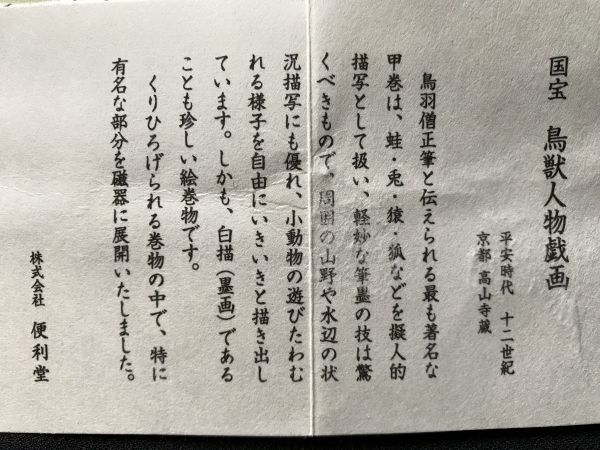 国宝　鳥獣人物戯画
平安時代　十二世紀
京都　高山寺蔵
鳥羽僧正筆と伝えられる最も著名な
甲巻は、蛙・兎・猿・狐などを擬人的
描写として扱い、軽妙な筆墨の技は驚
くべきもので、周囲の山野や水辺の状
況描写にも優れ、小動物の遊びたわむ
れる様子を自由にいきいきと描き出し
ています。しかも、白描（墨画）である
ことも珍しい絵巻物です。
くりひろげられる巻物の中で、特に
有名な部分を磁器に展開いたしました。
株式会社　便利堂